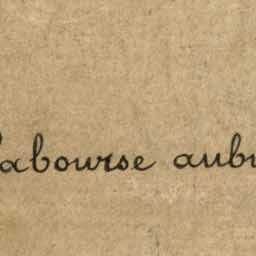 Labourse aubu